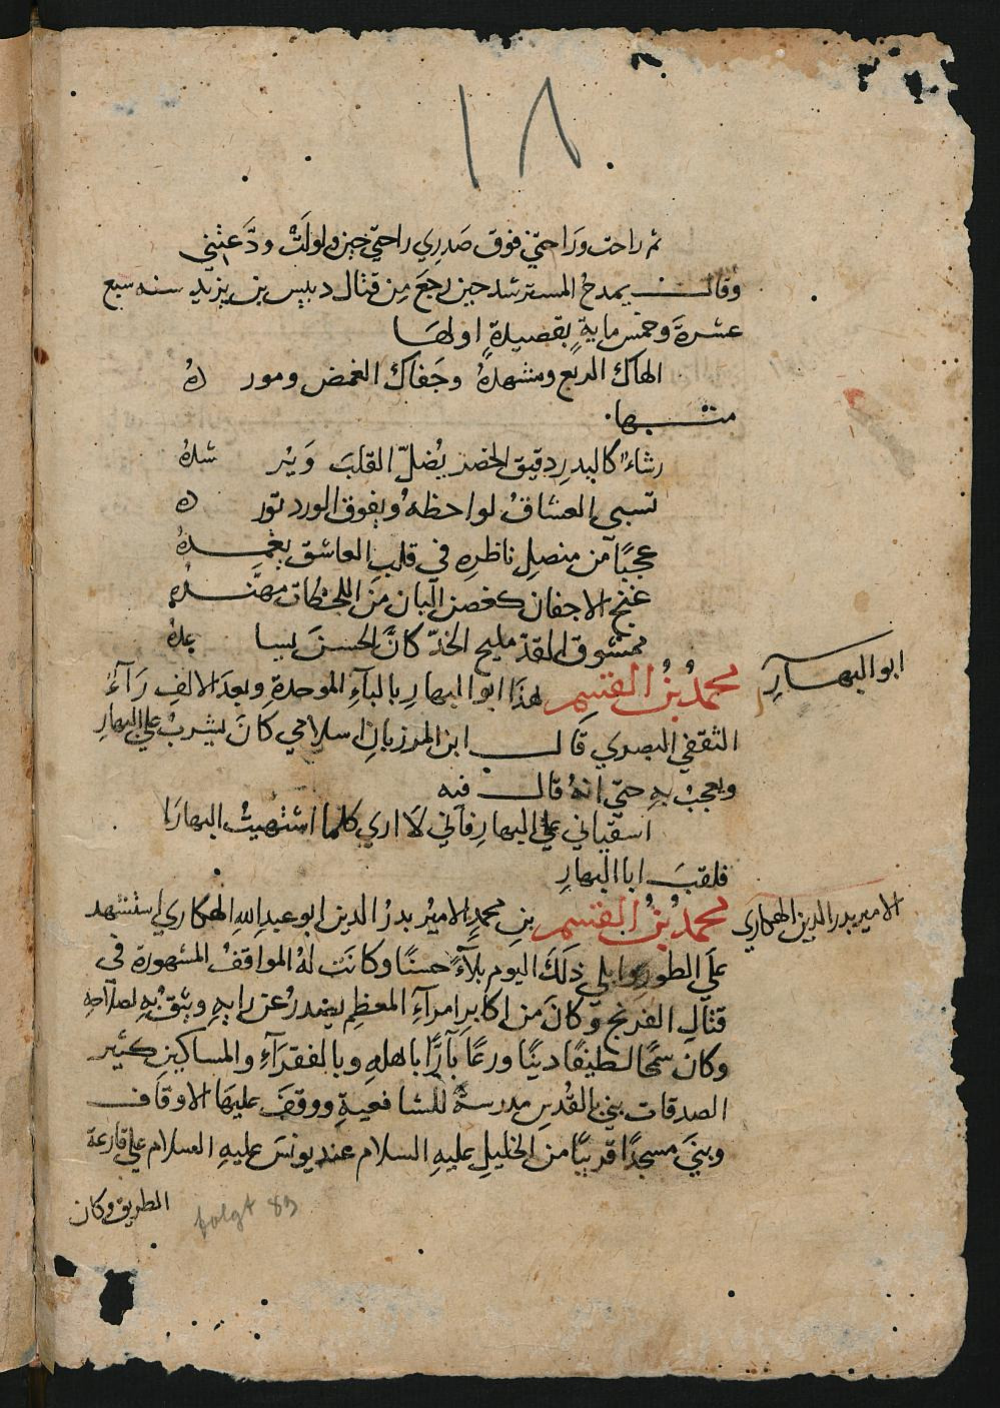 ١٨
ثم راحت وراحتي فوق صدري راحتي حين ولولت ودعتني
وقال يمدح المسترشد حين رجع من قتال دبيس بن يزيد سنه سبع
عشرة وخمس ماية بقصيدة اولها
الهاك الربع ومشهدهُ وجفاك الغمض ومور دهُ
منها
رشاء كالبدر دقيق الخصر يُضلّ القلبَ وَيُر شدهُ
تسبي العشاقُ لواحظهُ ويفوق الورد تور ده
عجبًا من منصل ناظره في قلب العاشق يغمدهُ
غنج الاجفان كغصن البان من اللحظات مهندهُ
ممشوق القد مليح الخدّ كانَّ الحسنَ يسا عدهُ
ابو البهارِ
محمدُ بنُ القسمِ هذا ابو البهارِ بالباءِ الموحدةِ وبعدَ الالفِ رَاءٌ
الثقفي البصري قال ابن المرزبان اسلامي كانَ يشربُ على البهارِ
ويعجبُ بهِ حتى انهُ قال فيه
اسقياني على البهارِ فاني لَا اري كلما اشتهيتُ البهارَا
فلقبَ ابا البهارِ
الامير بدر الدين الهكاري
محمدُ بنُ القسم بنِ محمدٍ الاميرُ بدرُ الدين ابو عبدِ اللهِ الهكاري استشهد
علَى الطورِ وابلى ذلكَ اليوم بلآءً حسنًا وكانَت لهُ المواقفُ المشهورة في
قتالِ الفرنج وكانَ من اكابرِ امرآءِ المعظمِ يصدرُ عن رايهِ ويثقُ بهِ لصلاحهِ
وكان سمحًا لطيفًا دينًا ورعًا بآرًّا باهلهِ وبالفقرآءِ والمساكين كثير
الصدقات بنى بالقُدسِ مدرسةً للشافعيةِ ووقفَ عليهَا الاوقاف
وبنَى مسجدًا قريبًا من الخليلِ عليهِ السلام عند يونسَ عليهِ السلام على قارعة
الطريق وكان
folgt 83